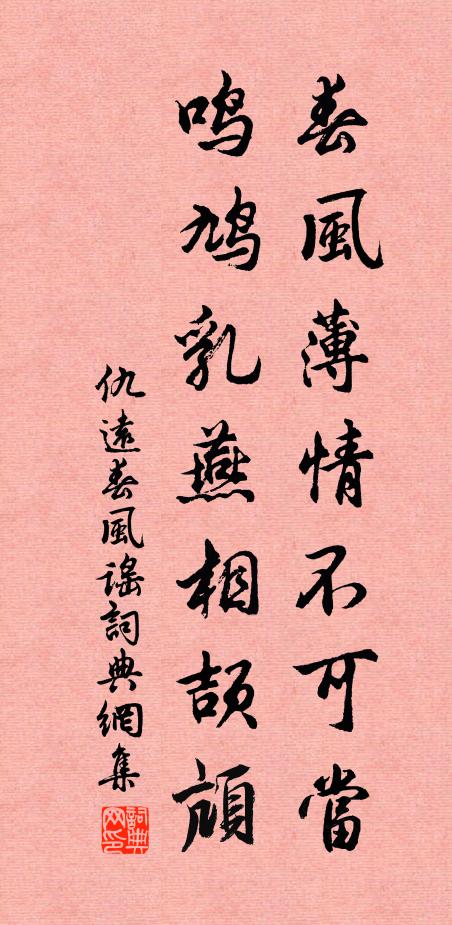 春風薄情不可當
鳴鳩乳燕相頡頏
仇遠春風謠詞典網集
詞典网印